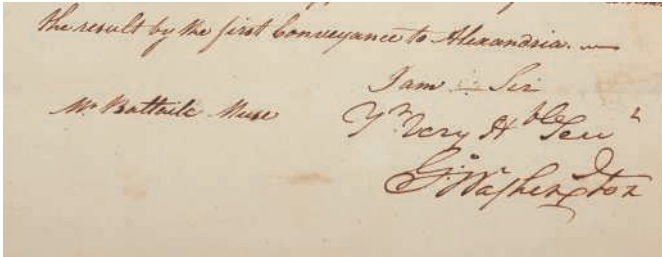 the result by the first Conveyance to Alexandria.
I am Sir
Mr Battaile Muse
Yr Very Hble Servt
Go: Washington